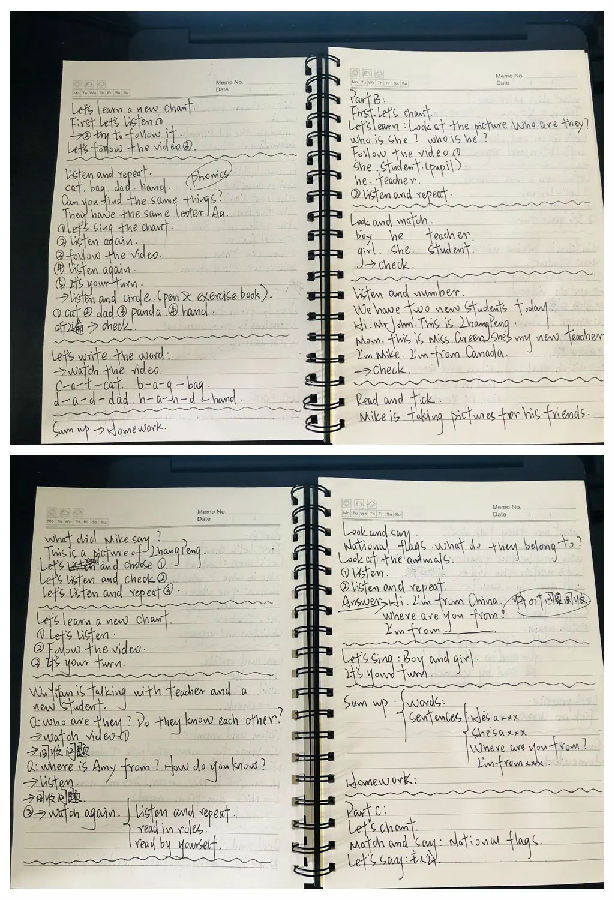 Memo No.
Date
Mo Tu We Th Fr Sa Su
Let's learn a new chant.
First Let's listen①
→② try to follow it.
Let's follow the video③.
Listen and repeat. (Phonics)
cat. bag. dad. hand.
Can you find the same things?
They have the same letter/Aa.
①Let's sing the chart.
②Listen again.
③follow the video.
④Listen again.
⑤It's your turn.
→Listen and circle. (pen & exercise book).
①cat ②dad ③panda ④hand.
→ check.
Let's write the word:
→Watch the video.
c-a-t-cat. b-a-g-bag
d-a-d-dad h-a-n-d-hand.
Sum up → Homework.
Memo No.
Date
Mo Tu We Th Fr Sa Su
Part B:
First Let's chant.
Let's learn: Look at the picture who are they?
who is she? who is he?
Follow the video①
she. student. (pupil)
he. teacher.
②Listen and repeat.
Look and match.
boy he teacher
girl. she. student.
→ check
Listen and number.
We have two new students today.
Hi. Mr John. This is Zhang Peng.
Mom. This is Miss Green. She's my new teacher
I'm Mike I'm from Canada.
→Check.
Read and tick.
Mike is taking pictures for his friends.
Memo No.
Date
Mo Tu We Th Fr Sa Su
what did Mike say?
This is a picture of Zhang Peng.
Let's and choose ①
Let's listen and check②
Let's listen and repeat③
Let's learn a new chant.
① Let's listen.
② Follow the video.
③ It's your turn.
Wu Yifan is talking with teacher and a
new student.
Q: who are they? Do they know each other?
→watch video①
→回收问题
Q: where is Amy from? How do you know?
→listen
→回收问题.
③→watch again. { Listen and repeat.
read in roles.
read by yourself.
Memo No.
Date
Mo Tu We Th Fr Sa Su
Look and say
National flags what do they belong to?
Look at the animals.
① listen.
② listen and repeat.
Answer→Hi. I'm from China.
where are you from?
I'm from
Let's sing: Boy and girl.
It's your turn
Sum up { words:
sentences { He's a xxx
She's a xxx
Where are you from?
I'm from xxx.
Homework:
Part C:
Let's chant.
Match and say: National flags.
Let's say: